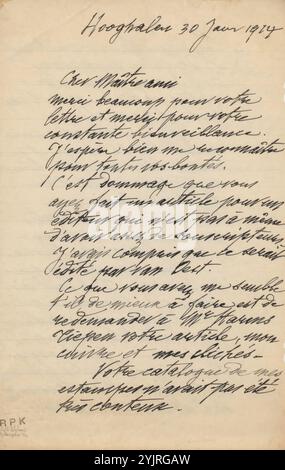 Hooghalen 30 Janv 1914
Cher Maître ami
merci beaucoup pour votre
lettre et merci pour votre
constante bienveillance.
J'espère bien me reconnaître
pour toutes vos bontés.
C'est dommage que vous
ayez fait un article pour un
éditeur qui n'est pas à même
d'avoir assez de souscripteurs
J'avais compris que ce serait
édité par Van Oest.
Ce que vous avez me semble
t'il de mieux à faire est de
redemander à Mr Harms
Tiepen votre article, mon
cuivre et mes clichés -
Votre catalogue de mes
estampes n'avait pas été
très contenu.
RPK
alamy
Image ID: 2YJRGAW
www.alamy.com